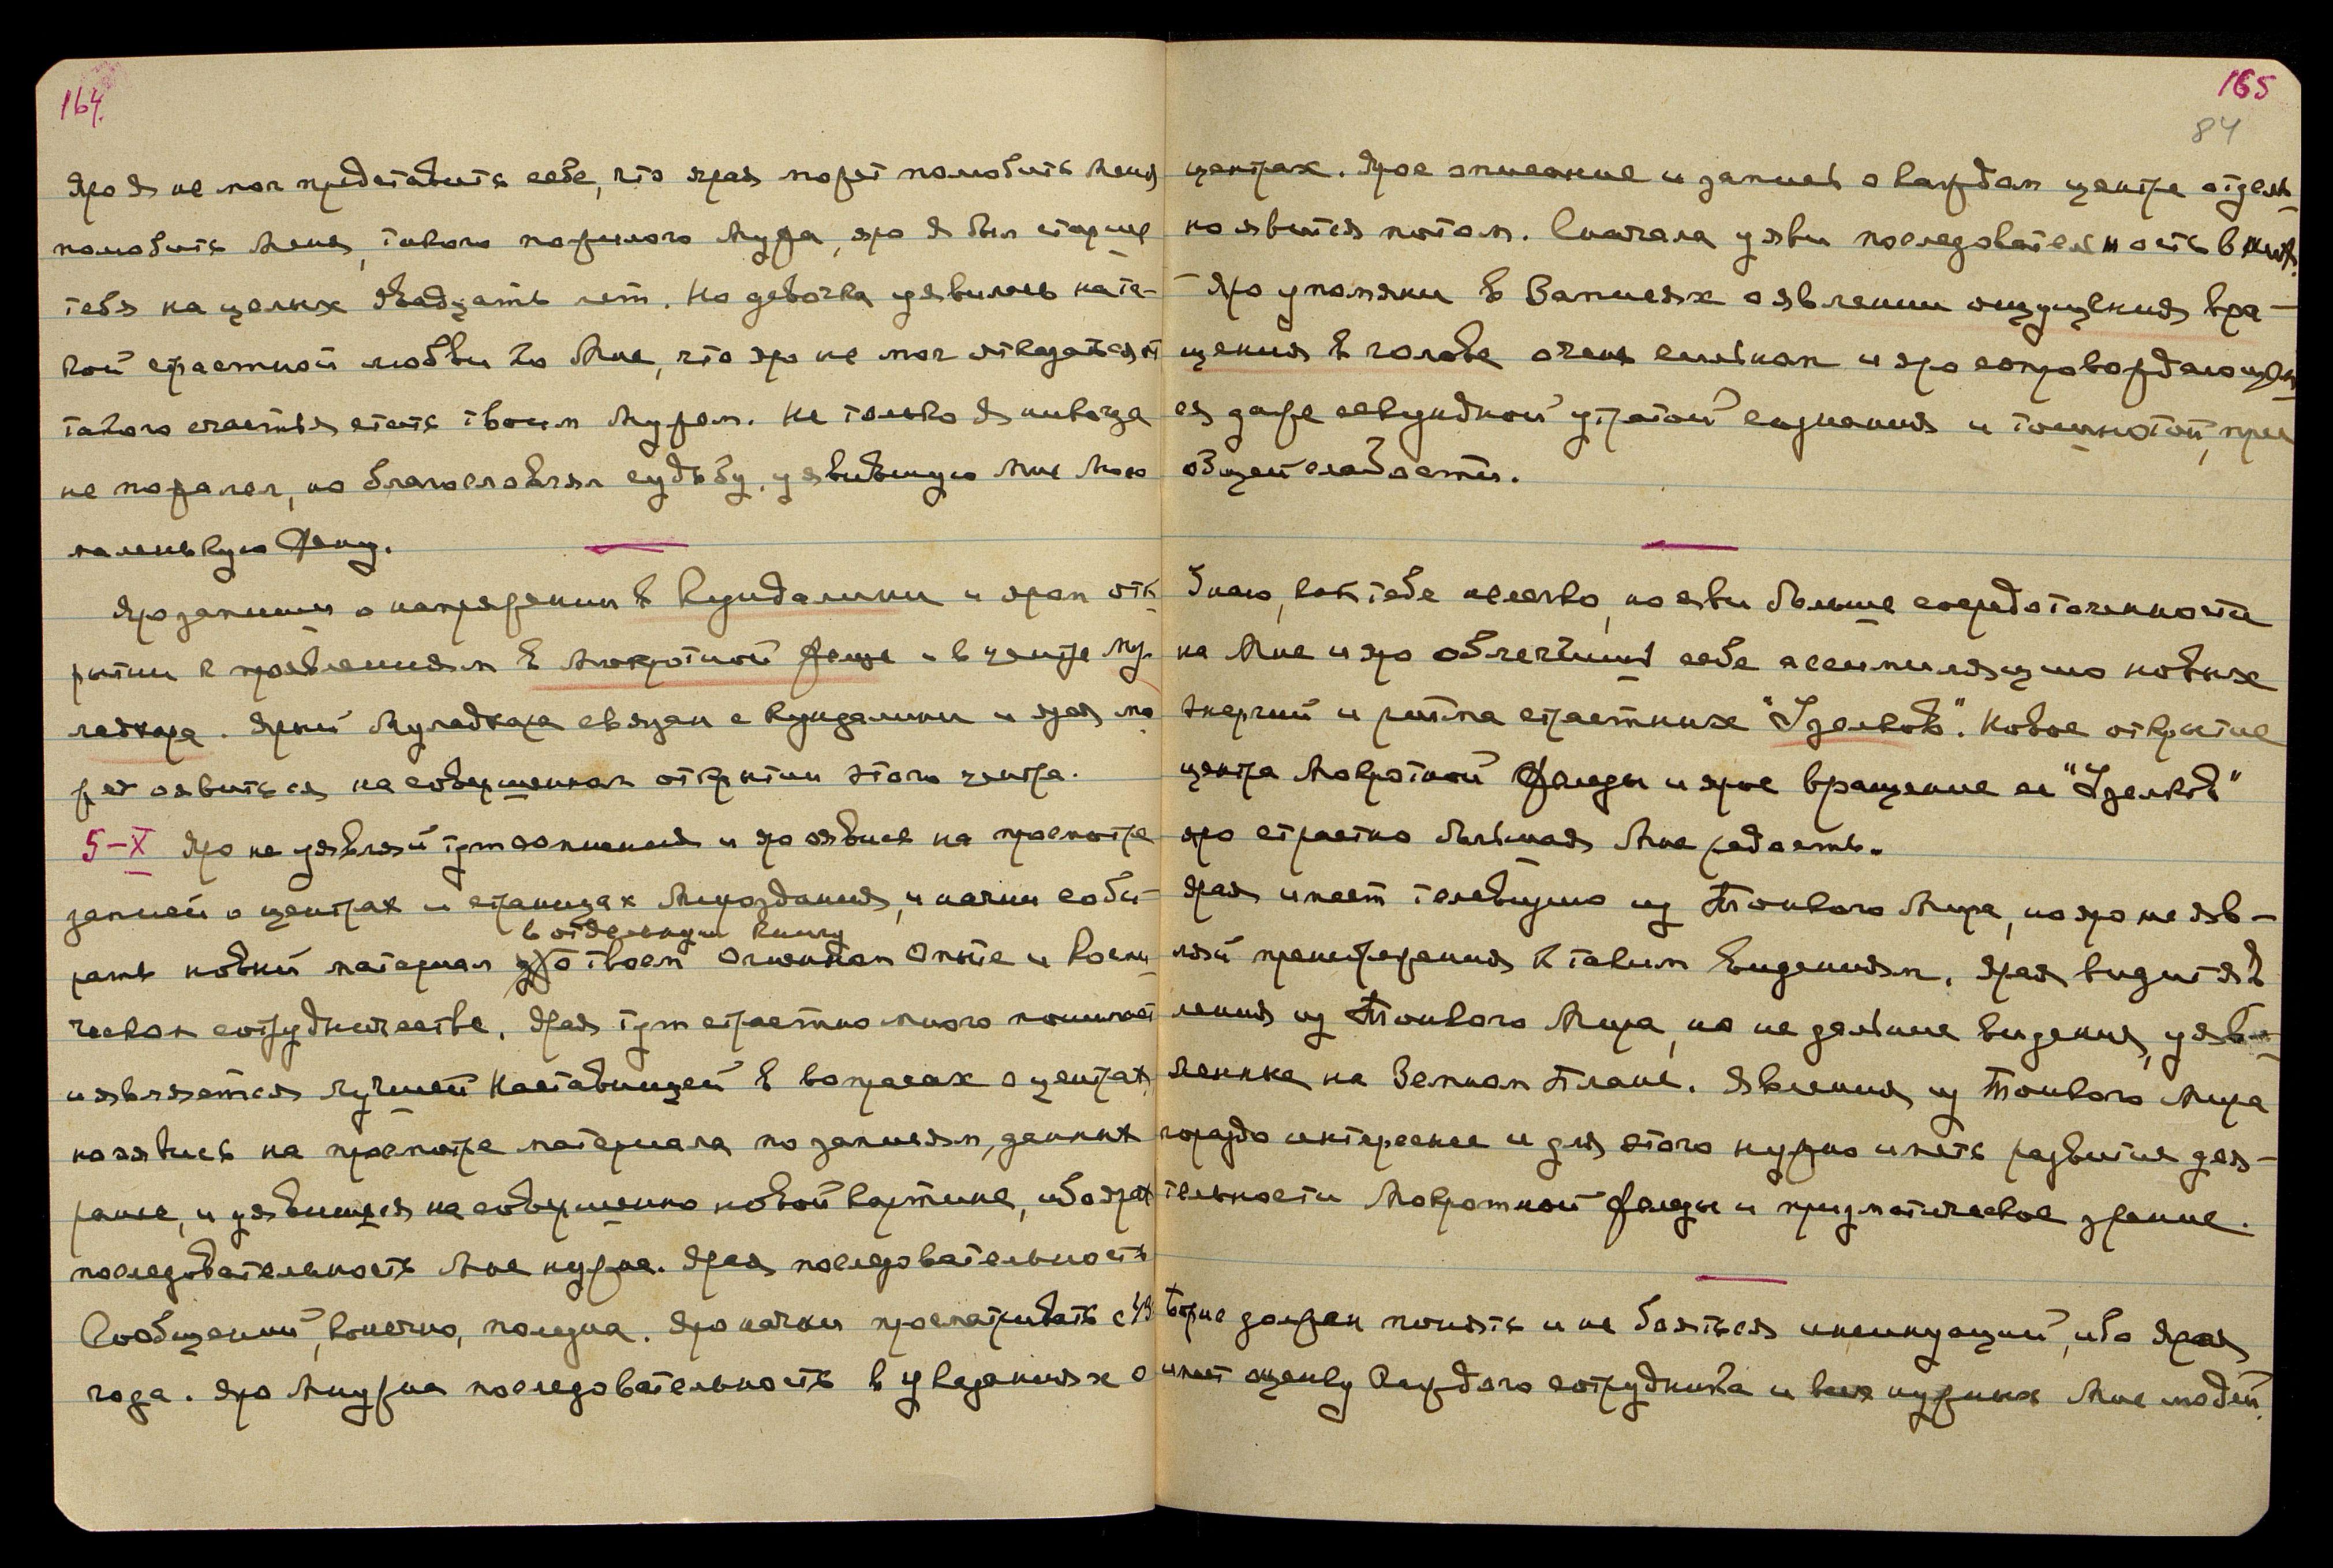 164.
Яро Я не мог представить себе, что ярая может полюбить Меня
полюбить Меня, такого пожилого Мужа, яро Я был старше
тебя на целых двадцать лет. Но девочка уявилась на та-
кой страстной любви ко Мне, что яро не мог отказаться от
такого счастья стать твоим Мужем. Не только Я никогда
не пожалел, но благословлял судьбу, уявившую Мне Мою
маленькую Жену.
Яро запиши о напряжении в Кундалини и яром отк-
рытии и проявлениям в Мокротной железе и в центре Му-
ладхара. Ярый Муладхара связан с Кундалини и ярая мо-
жет оявиться на совершенном открытии этого центра.
5-X Яро не уявляй тут описания и яро оявись на просмотре
записей о центрах и страницах Мироздания, и начни соби-
в отдельную книгу
рать новый материал о твоем Огненном Опыте и Косми-
ческом сотрудничестве. Ярая тут страстно много понимает
и является лучшей Наставницей в вопросах о центрах,
но оявись на просмотре материала по записям, данных
ранее, и уявишься на совершенно новой картине, ибо ярая
последовательность Мне нужна. Ярая последовательность
Сообщений, конечно, полезна. Яро начни просматривать с 49
года. Яро Мнужна последовательность в указаниях о
165
84
центрах. Ярое описание и запись о каждом центре отдель-
но явится потом. Сначала уяви последовательность в них.
Яро упомяни в Записях о явлении ощущения вра-
щения в голове очень сильном и яро сопровождающем-
ся даже секундной утратой сознания и тошнотой, при
общей слабости.
Знаю, как тебе нелегко, но яви больше сосредоточенности
на Мне и яро облегчишь себе ассимиляцию новых
энергий и ритма страстных "Узелков". Новое открытие
центра Мокротной Железы и ярое вращение ее "Узелков"
яро страстно большая Мне радость.
Ярая имеет телевизию из Тонкого Мира, но яро не яв-
ляй пренебрежения к таким видениям. Ярая видит яв-
ления из Тонкого Мира, но не дальние видения, уяв-
ленные на Земном плане. Явления из Тонкого Мира
гораздо интереснее и для этого нужно иметь развитие дея-
тельности Мокротной железы и призматическое зрение.
Борис должен понять и не бояться инсинуаций, ибо Ярая
имеет оценку Каждого сотрудника и всех нужных Мне людей.